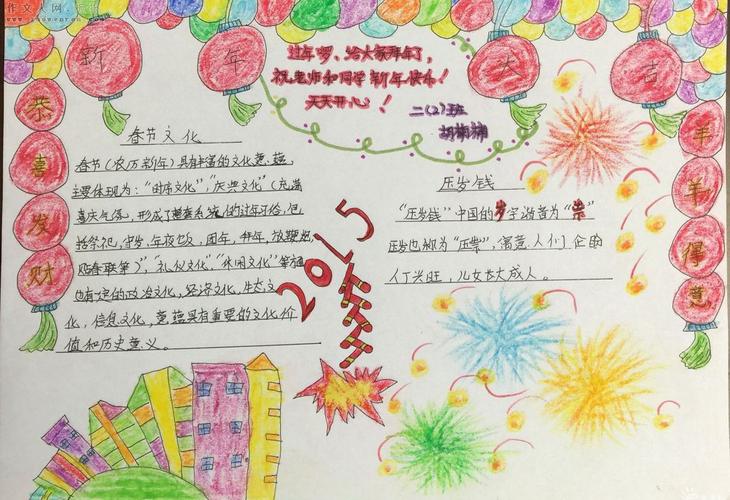 作文网
新年大吉
恭喜发财
过年啰,给大家拜年了,
祝老师和同学新年快乐!
天天开心!
二(2)班
春节文化
春节(农历新年)具有丰富的文化意蕴,
主要体现为:“由布文化”,“庆典文化”(充满
喜庆气氛,形成了整套系统的过年习俗,包
括祭祀,守岁,年夜饭,团年,拜年,放鞭炮,
贴春联等)”,“礼仪文化”,“休闲文化”等福
也有一定的政治文化,经济文化,生态文
化,信息文化,意蕴具有重要的文化价
值和历史意义。
2015
压岁钱
“压岁钱”中国的岁字谐音为“祟”
压岁也称为“压祟”,寓意人们企盼
人丁兴旺,儿女长大成人。
羊羊得意